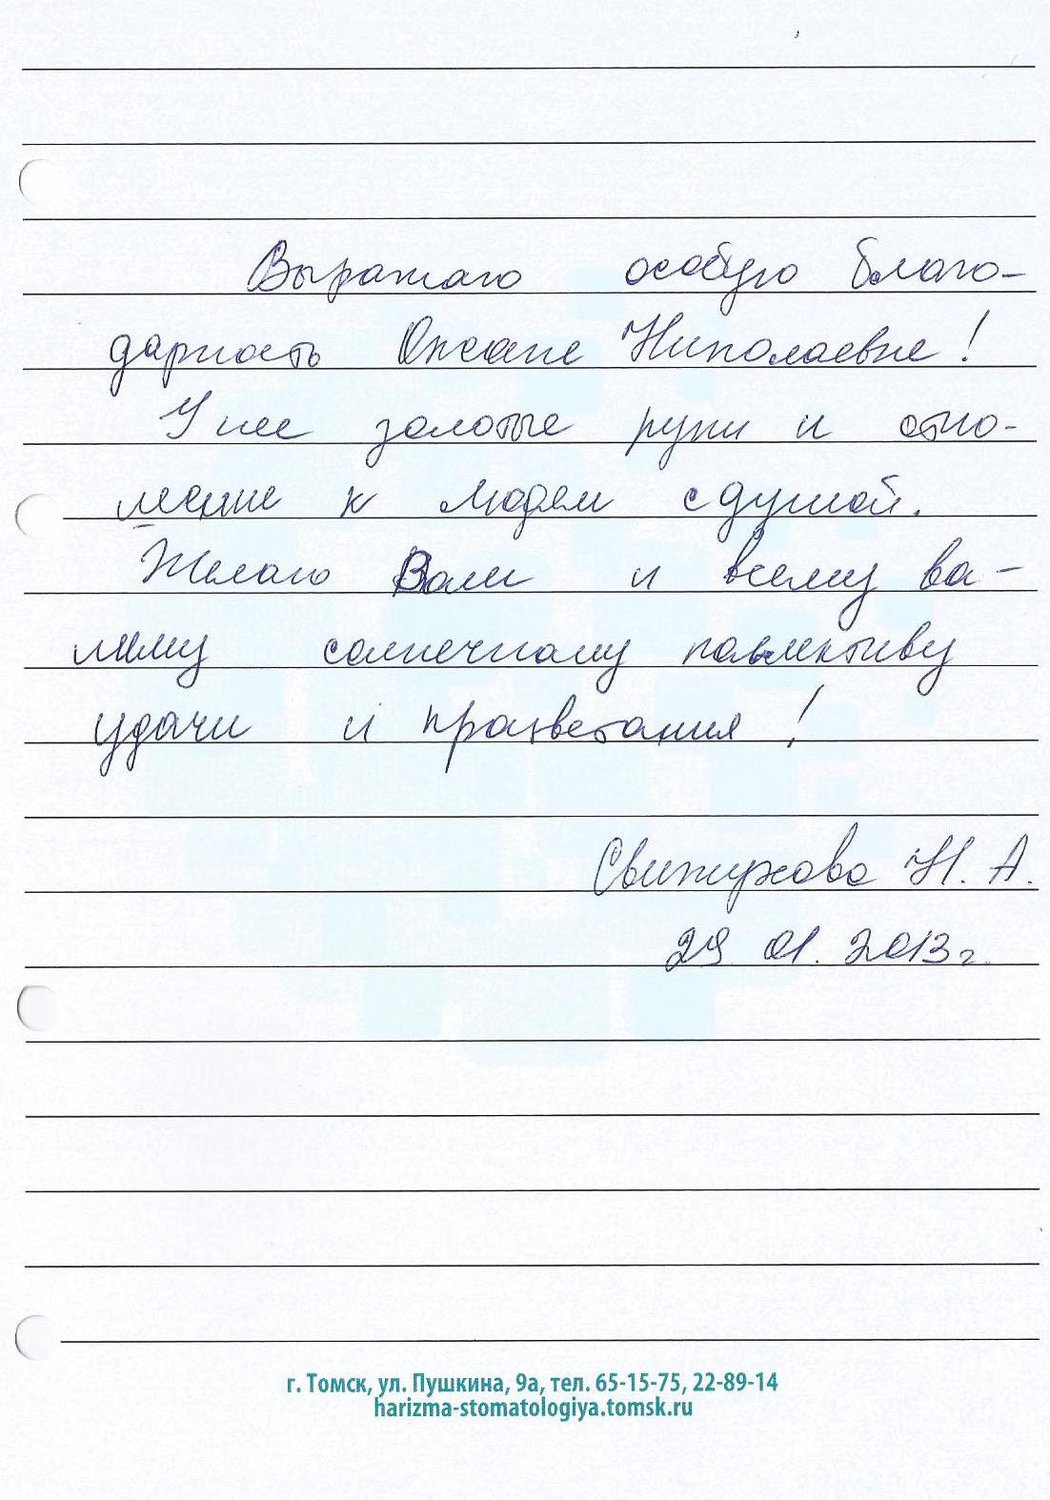 Выражаю особую благо-
дарность Оксане Николаевне!
У нее золотые руки и отно-
шение к людям с душой.
Желаю Вам и всему ва-
шему солнечному коллективу
удачи и процветания!
Н. А.
29 01. 2013 г.
г. Томск, ул. Пушкина, 9а, тел. 65-15-75, 22-89-14
harizma-stomatologiya.tomsk.ru